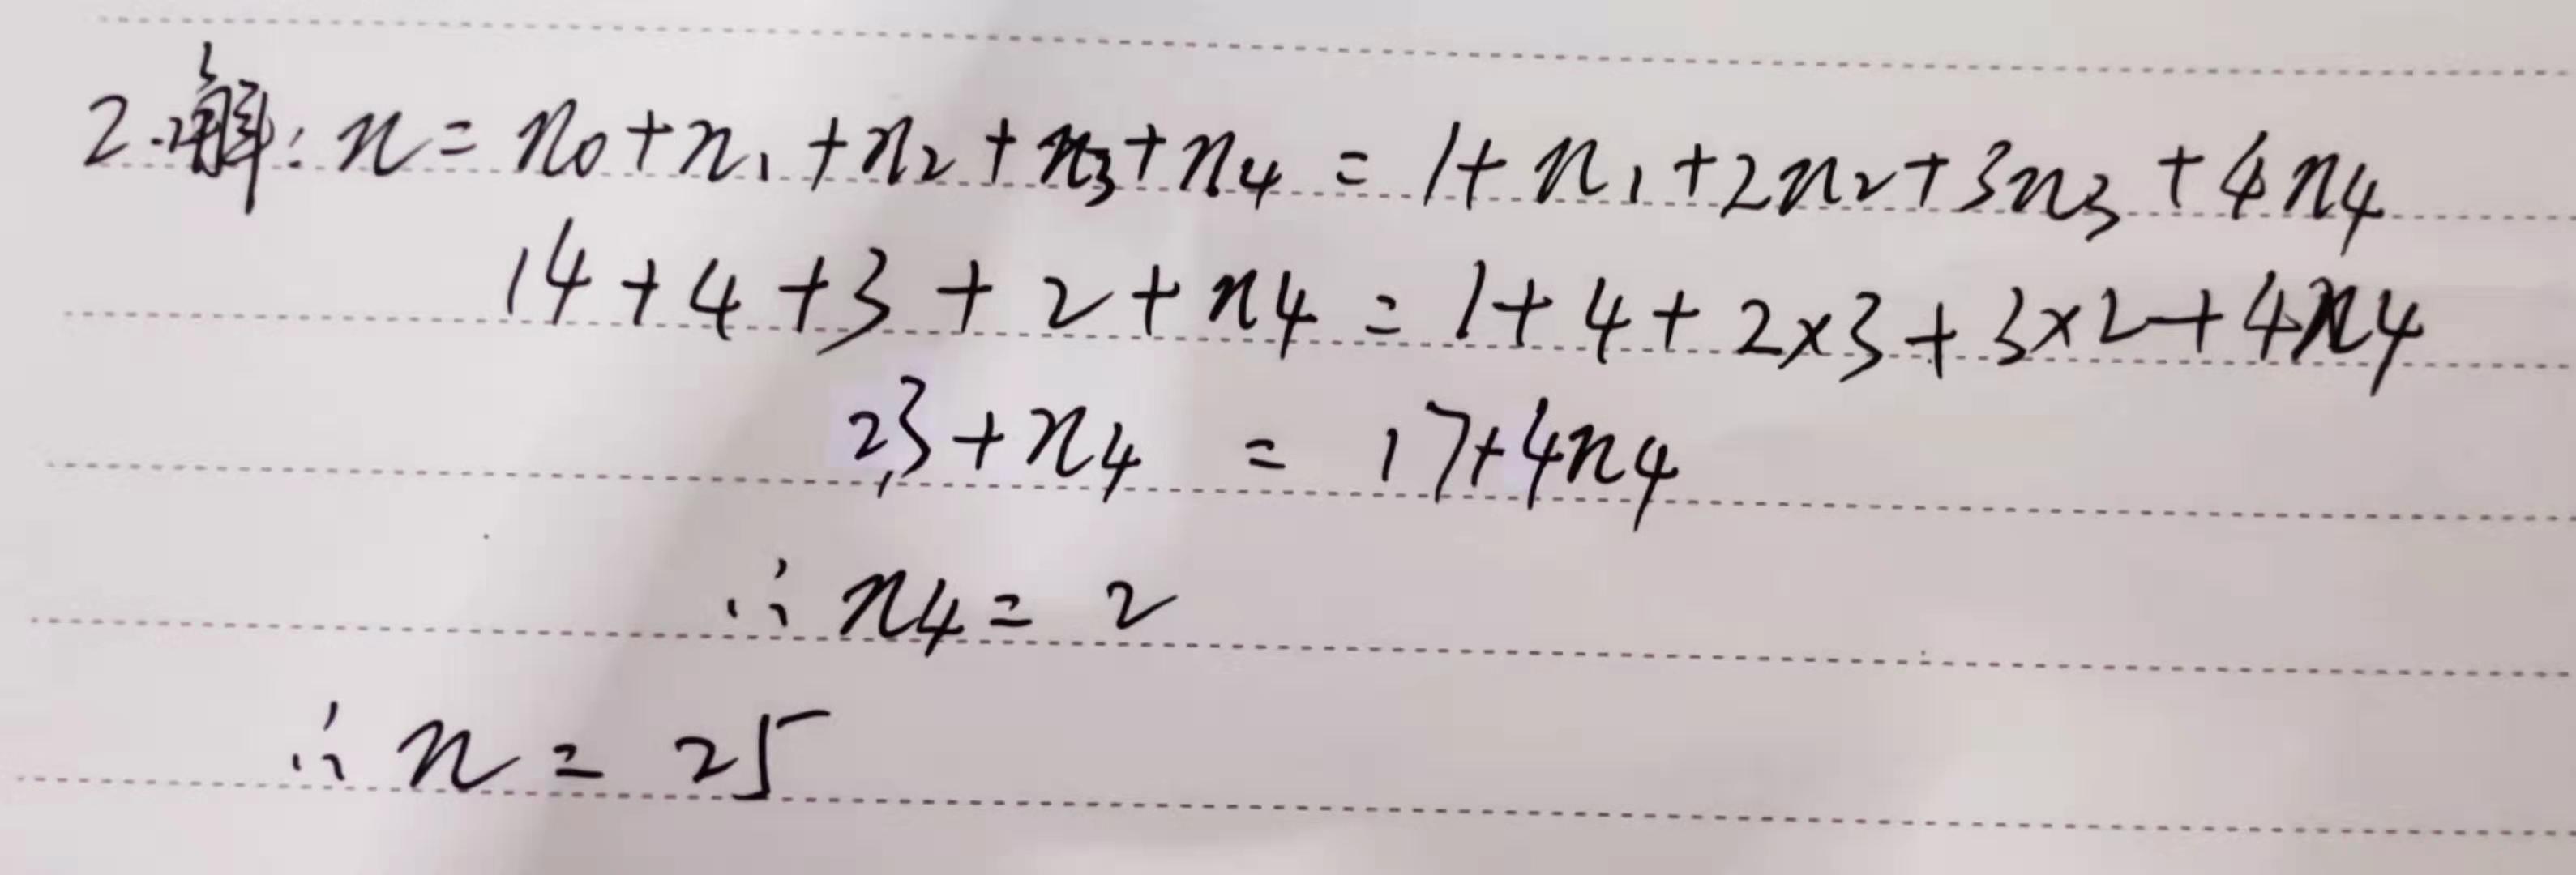 2.解: n = n0 + n1 + n2 + n3 + n4 = 1 + n1 + 2n2 + 3n3 + 4n4
14 + 4 + 3 + 2 + n4 = 1 + 4 + 2×3 + 3×2 + 4n4
23 + n4 = 17 + 4n4
∴ n4 = 2
∴ n = 25